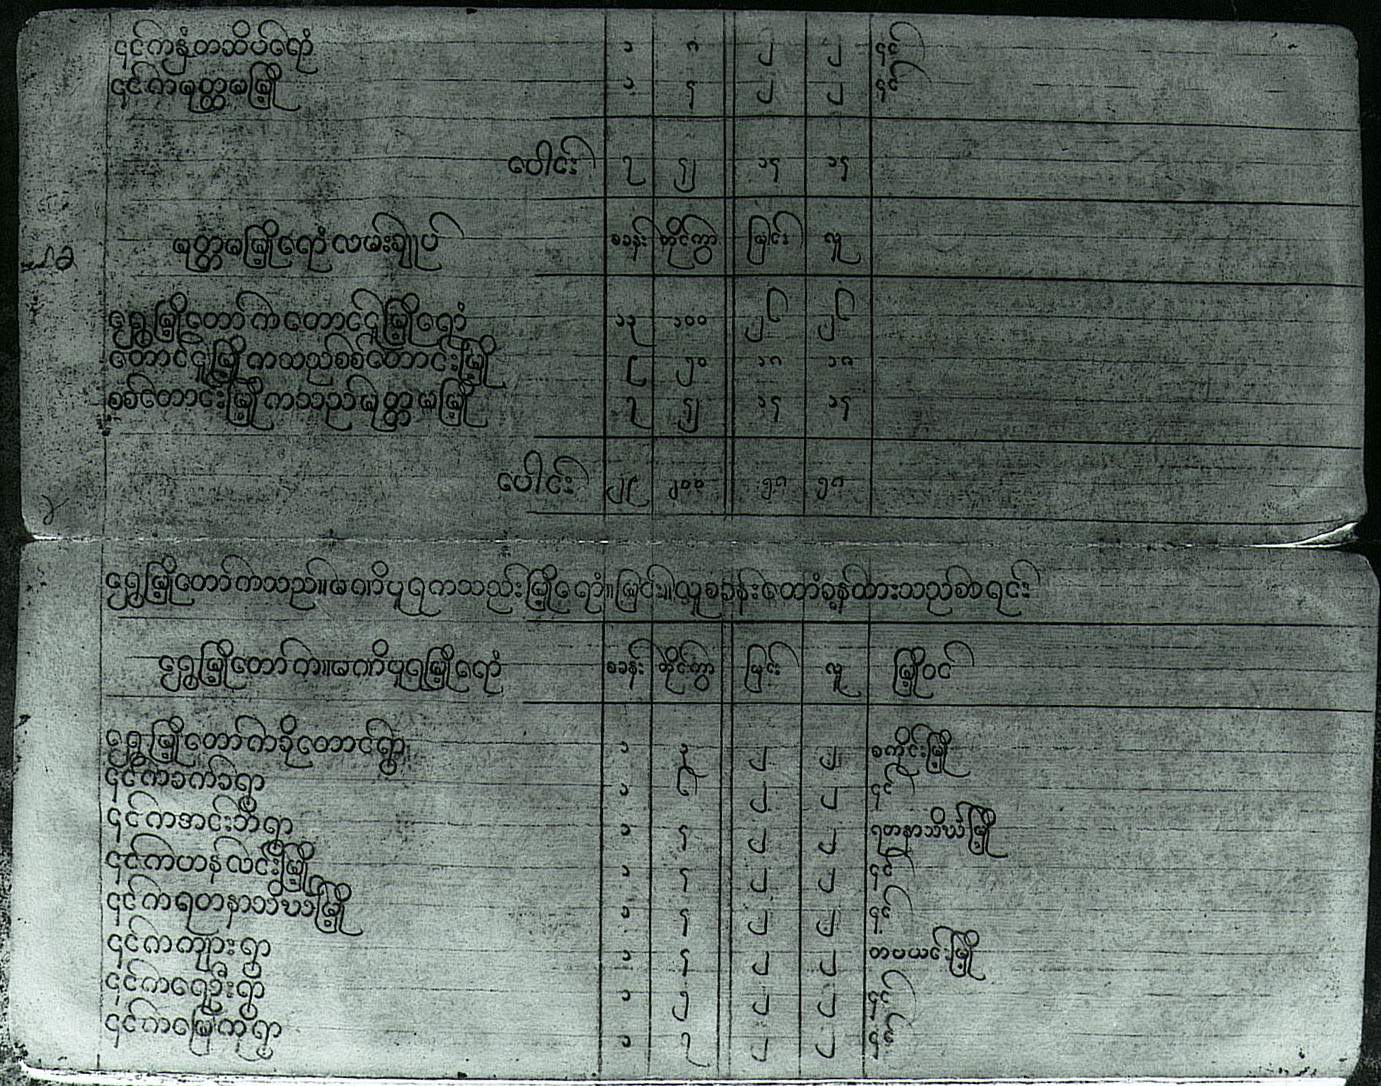 ၎င်ကနှံတဆိပ်ရောံ ၁ ၈ ၂ ၂ ၎င်
၎င်ကမုတ္တမမြို့ ၁ ၅ ၂ ၂ ၎င်
ပေါင်း ၇ ၅၂ ၁၅ ၁၅
မုတ္တမမြို့ရောံလမ်းချုပ် စခန်း တိုင်ကွာ မြင်း လူ
ရွှေမြို့တော်ကတောင်ငူမြို့ရောံ ၁၃ ၁၀၀ ၂၆ ၂၆
တောင်ငူမြို့ကသည်စစ်တောင်းမြို့ ၉ ၅၀ ၁၈ ၁၈
စစ်တောင်းမြို့ကသည်မုတ္တမမြို့ ၇ ၅၂ ၁၅ ၁၅
ပေါင်း ၂၉ ၂၀၀ ၅၈ ၅၈
ရွှေမြို့တော်ကသည်။မဏိပူရကသည်းမြို့ရောံ။မြင်း။လူစခန်းထောံခန့်ထားသည်စာရင်း
ရွှေမြို့တော်က။မဏိပူရမြို့ရောံ စခန်း တိုင်ကွာ မြင်း လူ မြို့ဝင်
ရွှေမြို့တော်ကခိုတောင်ရွာ ၁ ၃ ၂ ၂ စကိုင်းမြို့
၎င်ကခက်ခံရွာ ၁ ၆ ၂ ၂ ၎င်
၎င်ကအင်းဘိရွာ ၁ ၅ ၂ ၂ ရတနာသိင်္ဃမြို့
၎င်ကဟန်လင်းမြို့ ၁ ၅ ၂ ၂ ၎င်
၎င်ကရတနာသိင်္ဃမြို့ ၁ ၅ ၂ ၂ ၎င်
၎င်ကကျားရွာ ၁ ၅ ၂ ၂ တပယင်းမြို့
၎င်ကရေဦးရွာ ၁ ၅ ၂ ၂ ၎င်
၎င်ကမြေကိုရွာ ၁ ၇ ၂ ၂ ၎င်